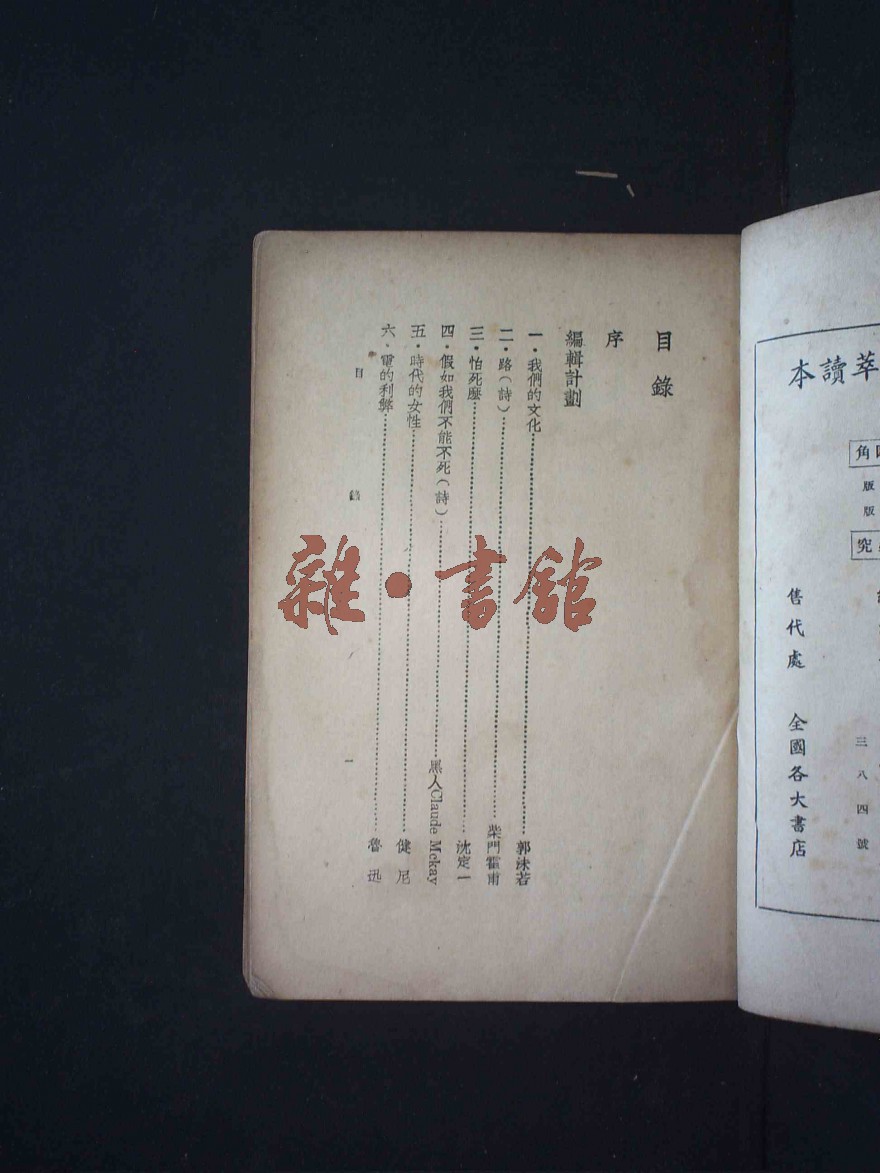 萃讀本
角
版
版
究
三八四號
售代處　全國各大書店
目錄
序
編輯計劃
一．我們的文化…………郭沫若
二．路（詩）…………柴門霍甫
三．怕死麼…………沈定一
四．假如我們不能不死（詩）…………黑人Claude Mckay
五．時代的女性…………健尼
六．電的利弊…………魯迅
目錄　一
雜・書館